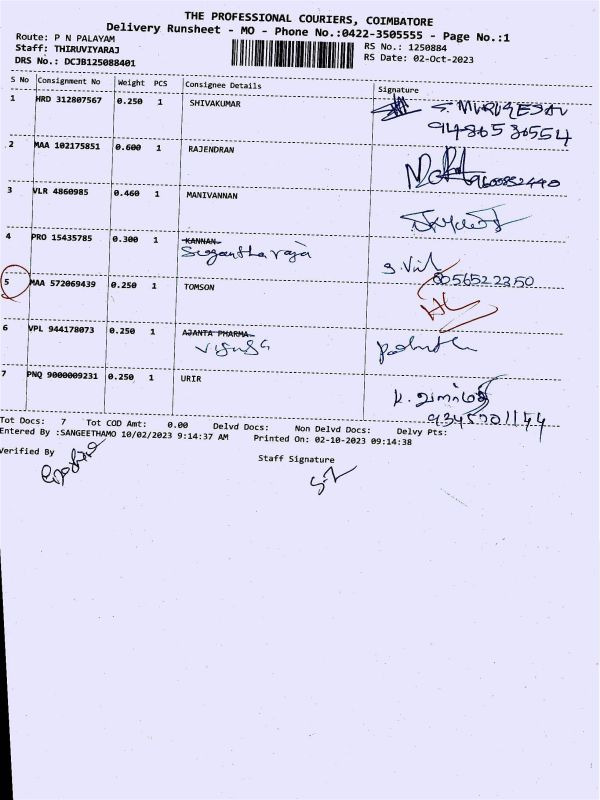 THE PROFESSIONAL COURIERS, COIMBATORE
Delivery Runsheet - MO - Phone No.:0422-3505555 - Page No.:1
Route: P N PALAYAM
RS No.: 1250884
Staff: THIRUVIYARAJ
RS Date: 02-Oct-2023
DRS No.: DCJB125088401
S No Consignment No Weight PCS Consignee Details Signature
1 HRD 312807567 0.250 1 SHIVAKUMAR S. MURUGESAN
9486536554
2 MAA 102175851 0.600 1 RAJENDRAN
3 VLR 4860985 0.460 1 MANIVANNAN
4 PRO 15435785 0.300 1 KANNAN
Sugantha raja
5 MAA 572069439 0.250 1 TOMSON
6 VPL 944178073 0.250 1 AJANTA PHARMA
7 PNQ 9000009231 0.250 1 URIR
Tot Docs: 7 Tot COD Amt: 0.00 Delvd Docs: Non Delvd Docs: Delvy Pts:
Entered By :SANGEETHAMO 10/02/2023 9:14:37 AM Printed On: 02-10-2023 09:14:38
Verified By
Staff Signature